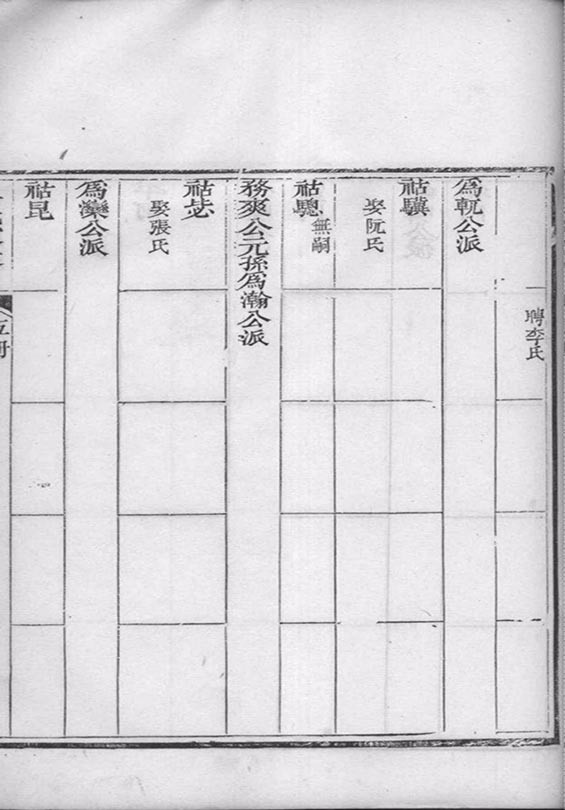 聘李氏
為軏公派
祜驥
娶阮氏
祜驄
無嗣
務爽公元孫為瀚公派
祜毖
娶張氏
為灤公派
祜昆
五冊